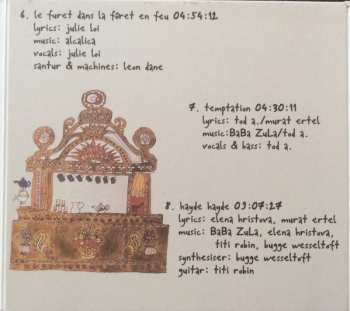 6. le furet dans la fôret en feu 04:54:12
lyrics: julie loi
music: alcalica
vocals: julie loi
santur & machines: leon dane
7. temptation 04:30:11
lyrics: tod a./murat ertel
music:BaBa ZuLa/tod a.
vocals & bass: tod a.
8. hayde hayde 03:07:27
lyrics: elena hristova, murat ertel
music: BaBa ZuLa, elena hristova,
titi robin, bugge wesseltoft
synthesiser: bugge wesseltoft
guitar: titi robin